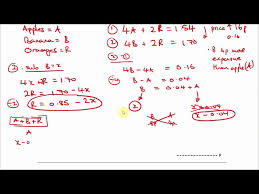 Apples = A
Bananas = B
Oranges = R
② : sub B = x
4x + 2R = 1.70
2R = 1.70 - 4x
÷2 R = 0.85 - 2x
A + B + R
A
x - 0
① 4A + 2R = 1.54
② 4B + 2R = 1.70
4B - 4A = 0.16
÷4 B - A = 0.04
B = 0.04 + A
x
price ↑ 16p
0.16
B 4p more
expensive
than apple (A)
x - 0.04